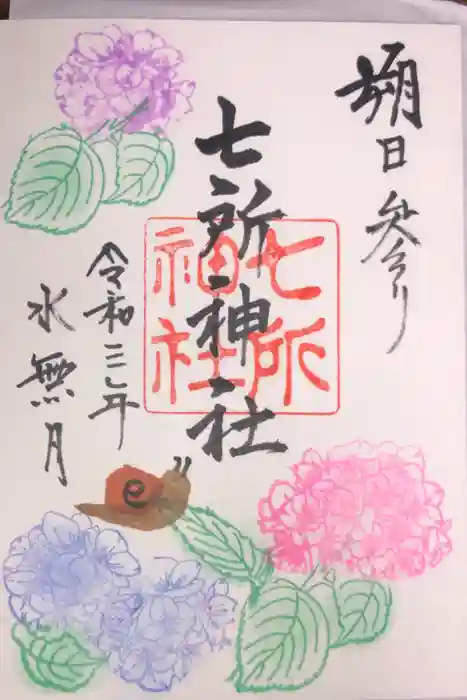 朔日参り
七所神社
七所神社
令和三年
水無月